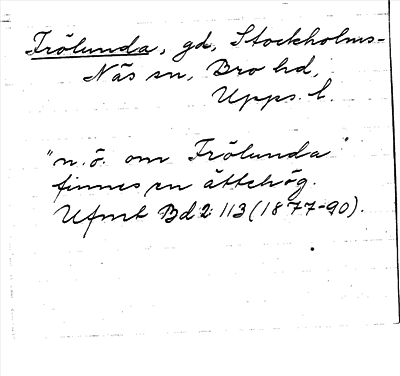 Frölunda, gd, Stockholms-
Näs sn, Bro hd,
Upps. l.
"n. ö. om Frölunda"
finnes en ättehög.
Ufmt Bd 2 113 (1877-90).